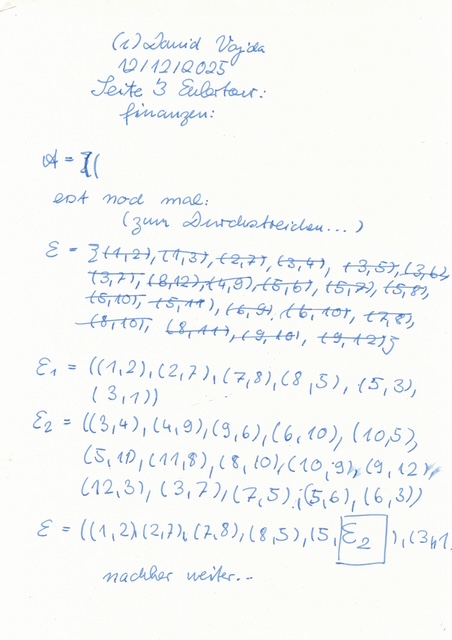 (c) David Vajda
12/12/2025
Seite 3 Eulertour:
finanzen:
A = {(
erst noch mal:
(zum Durchstreichen...)
E = {(1,2), (1,3), (2,7), (3,4), (3,5), (3,6),
(3,7), (8,12), (4,9), (5,6), (5,7), (5,8),
(5,10), (5,11), (6,9), (6,10), (7,8),
(8,10), (8,11), (9,10), (9,12)}
E1 = ((1,2), (2,7), (7,8), (8,5), (5,3),
(3,1))
E2 = ((3,4), (4,9), (9,6), (6,10), (10,5),
(5,11), (11,8), (8,10), (10,9), (9,12),
(12,3), (3,7), (7,5), (5,6), (6,3))
E = ((1,2), (2,7), (7,8), (8,5), (5, E2 ), (3,1
nachher weiter...